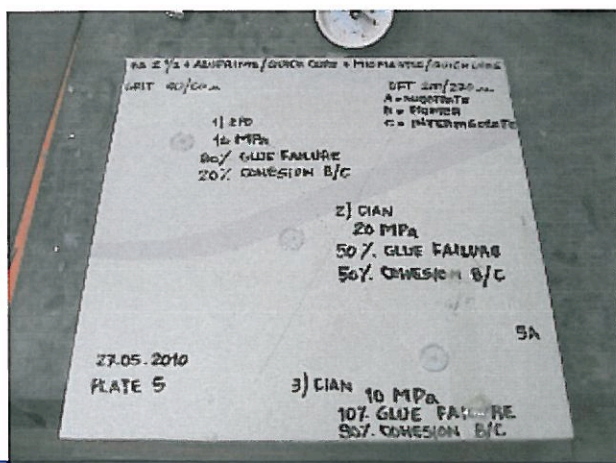 SA 2 1/2 + ALUPRIME/QUICK CURE + MIOMASTIC/QUICK CURE
GRIT 40/60
DFT 200/270
A = SUBSTRATE
B = PRIMER
C = INTERMEDIATE
1)
16 MPa
80% GLUE FAILURE
20% COHESION B/C
2) CIAN
20 MPa
50% GLUE FAILURE
50% COHESION B/C
5A
27.05.2010
PLATE 5
3) CIAN 10 MPa
10% GLUE FAILURE
90% COHESION B/C